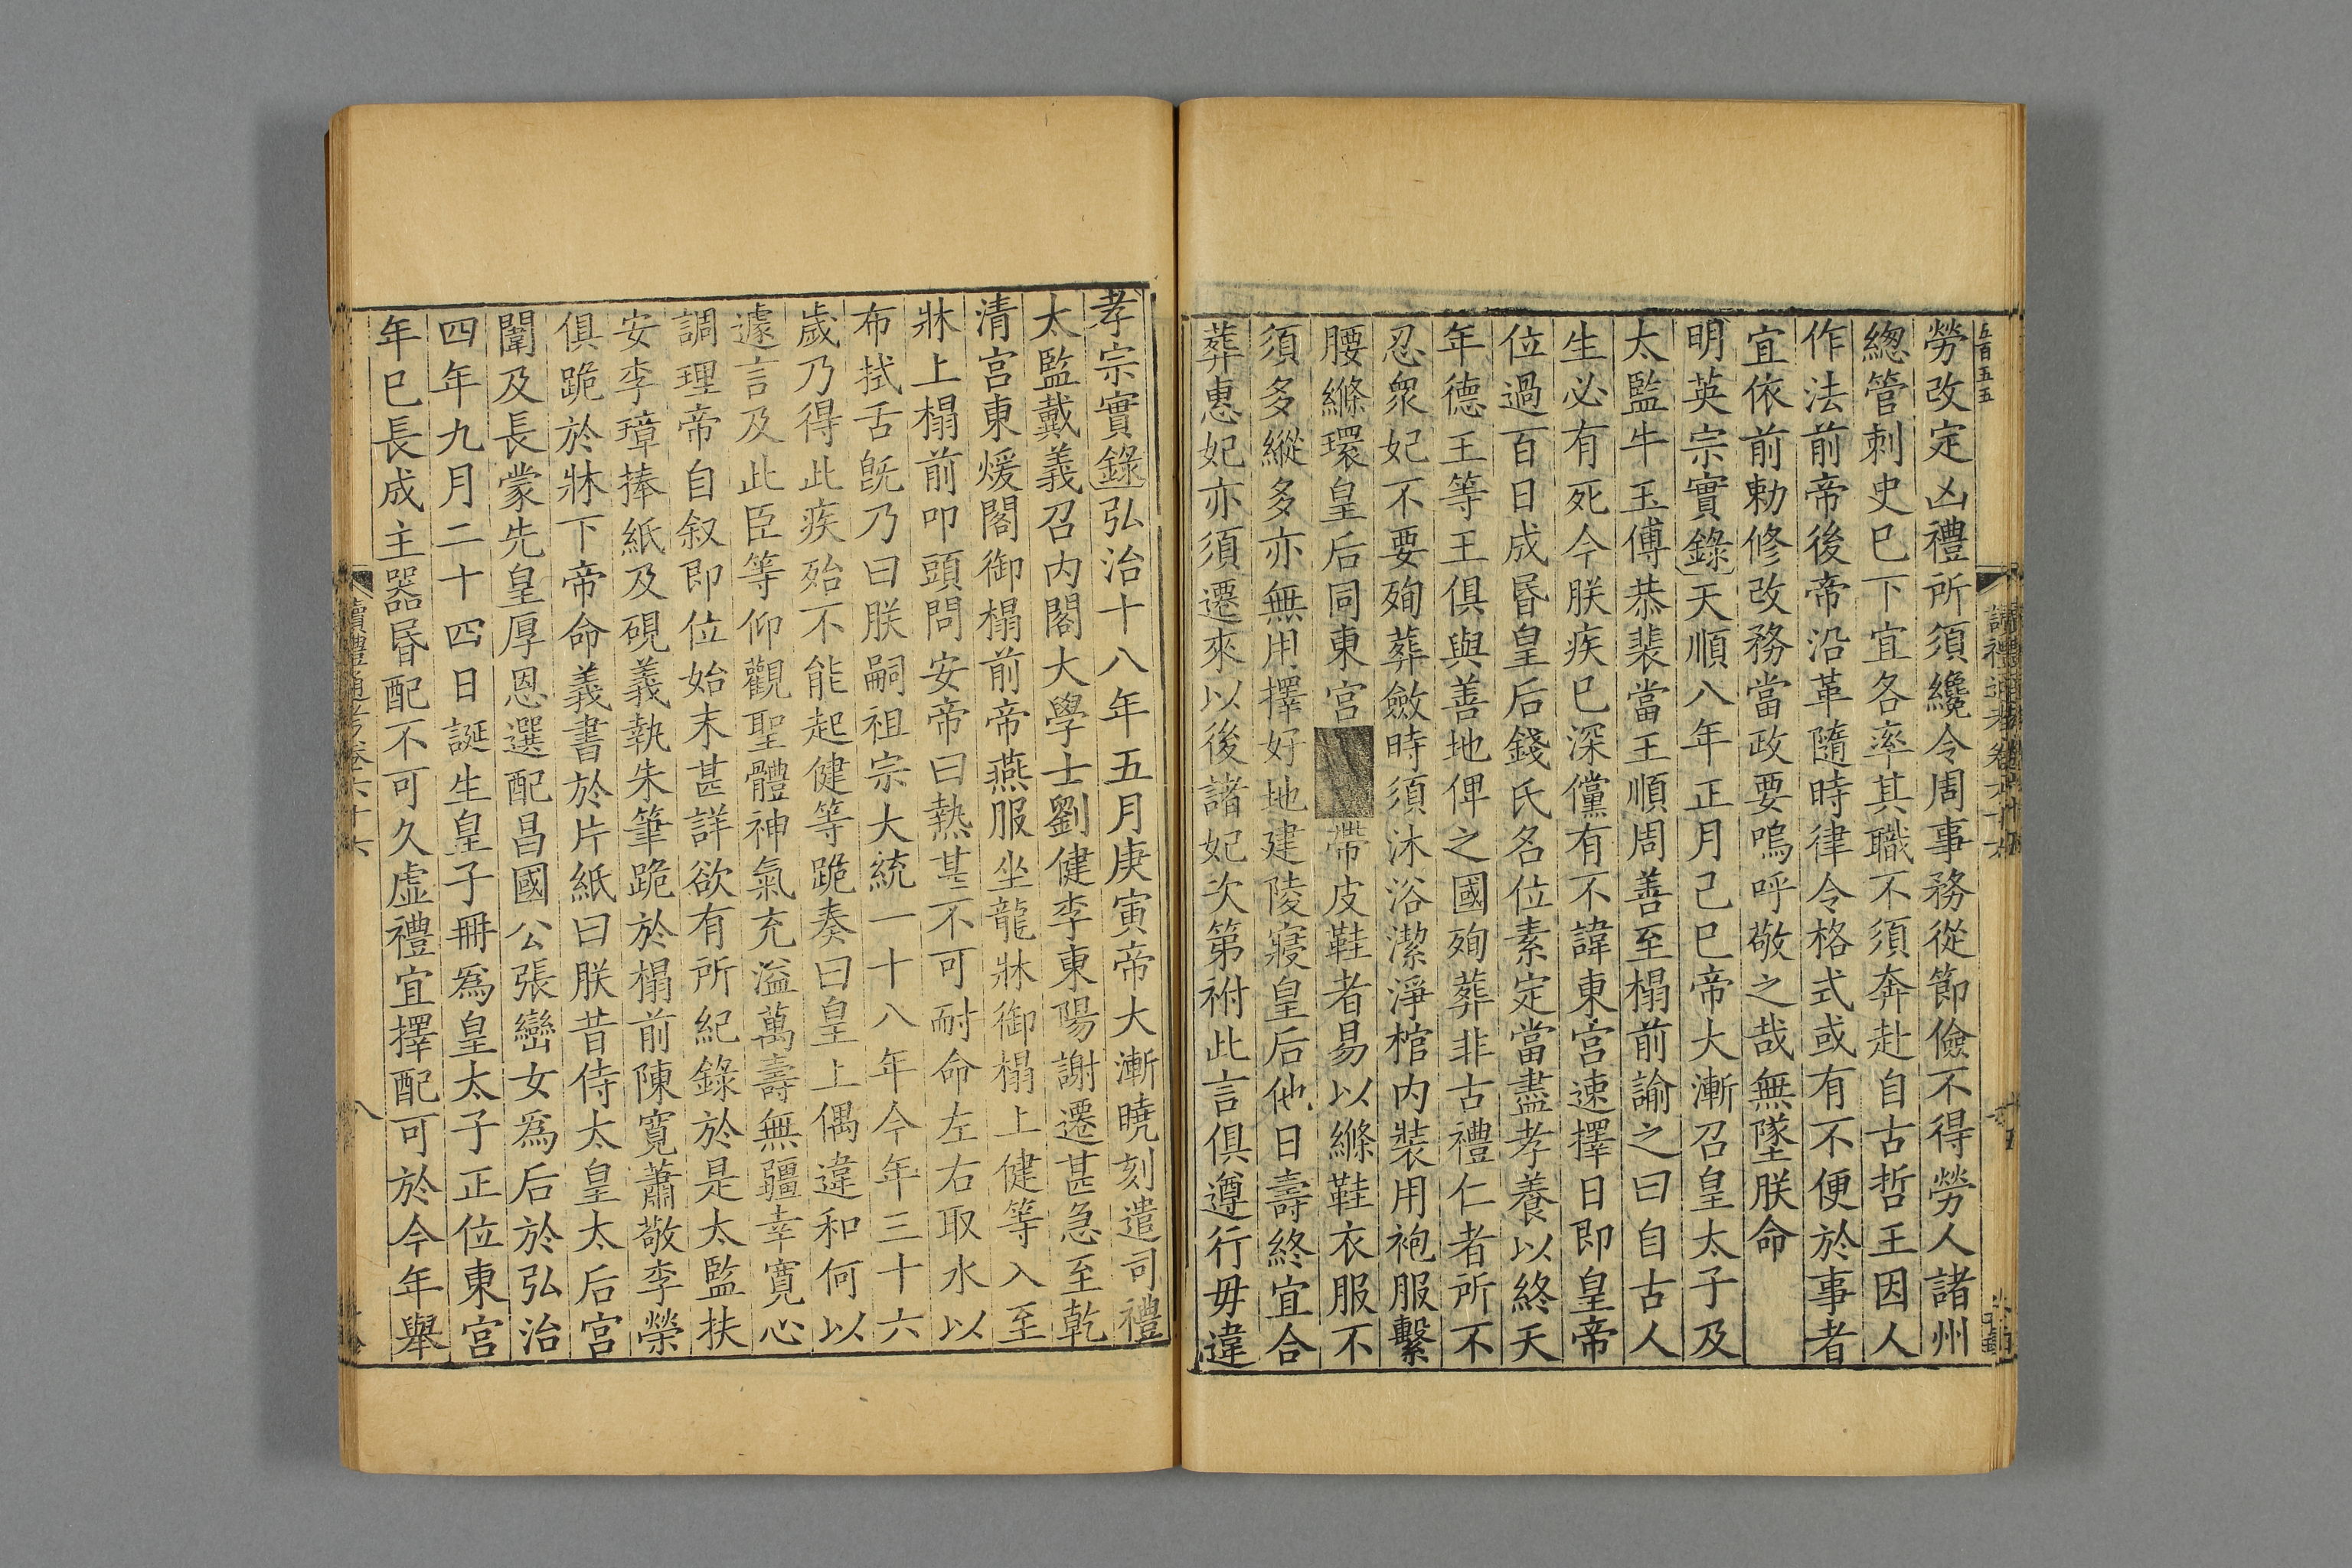 勞改定凶禮所須纔令周事務從節儉不得勞人諸州
緫管刺史巳下宜各率其職不須奔赴自古哲王因人
作法前帝後帝沿革隨時律令格式或有不便於事者
宜依前勅修改務當政要嗚呼敬之哉無墜朕命
明英宗實錄天順八年正月己巳帝大漸召皇太子及
太監牛玉傅恭裴當王順周善至榻前諭之曰自古人
生必有死今朕疾已深儻有不諱東宮速擇日即皇帝
位過百日成昏皇后錢氏名位素定當盡孝養以終天
年德王等王俱與善地俾之國殉葬非古禮仁者所不
忍衆妃不要殉葬斂時須沐浴潔淨棺内裝用袍服繫
腰縧環皇后同東宮帶皮鞋者易以縧鞋衣服不
須多縱多亦無用擇好地建陵寢皇后他日壽終宜合
葬惠妃亦須遷來以後諸妃次第祔此言俱遵行毋違
孝宗實錄弘治十八年五月庚寅帝大漸曉刻遣司禮
太監戴義召内閣大學士劉健李東陽謝遷甚急至乾
清宮東煖閣御榻前帝燕服坐龍牀御榻上健等入至
牀上榻前叩頭問安帝曰熱甚不可耐命左右取水以
布拭舌旣乃曰朕嗣祖宗大統一十八年今年三十六
歲乃得此疾殆不能起健等跪奏曰皇上偶違和何以
遽言及此臣等仰觀聖體神氣充溢萬壽無疆幸寬心
調理帝自叙即位始末甚詳欲有所紀錄於是太監扶
安李璋捧紙及硯義執朱筆跪於榻前陳寬蕭敬李榮
俱跪於牀下帝命義書於片紙曰朕昔侍太皇太后宮
闈及長蒙先皇厚恩選配昌國公張巒女爲后於弘治
四年九月二十四日誕生皇子冊爲皇太子正位東宮
年已長成主器昏配不可久虛禮宜擇配可於今年舉
讀禮通考卷六十六
八